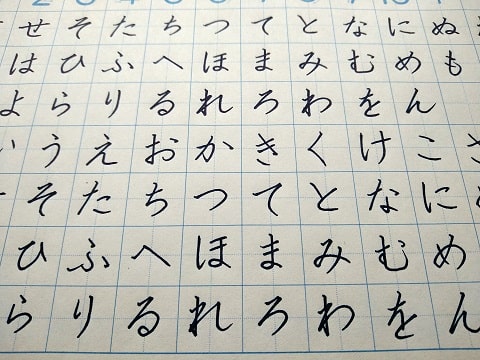 せそたちつてとなにぬ
はひふへほまみむめも
よらりるれろわをん
うえおかきくけこ
そたちつてとなに
ひふへほまみむめ
らりるれろわをん